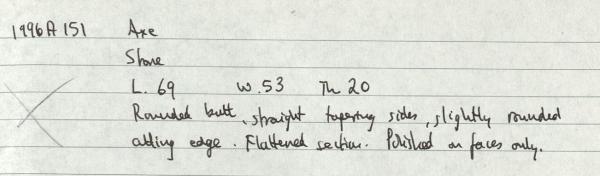 1996A 151 Axe
Stone
L. 69 W. 53 Th 20
Rounded butt, straight tapering sides, slightly rounded
cutting edge. Flattened section. Polished on faces only.